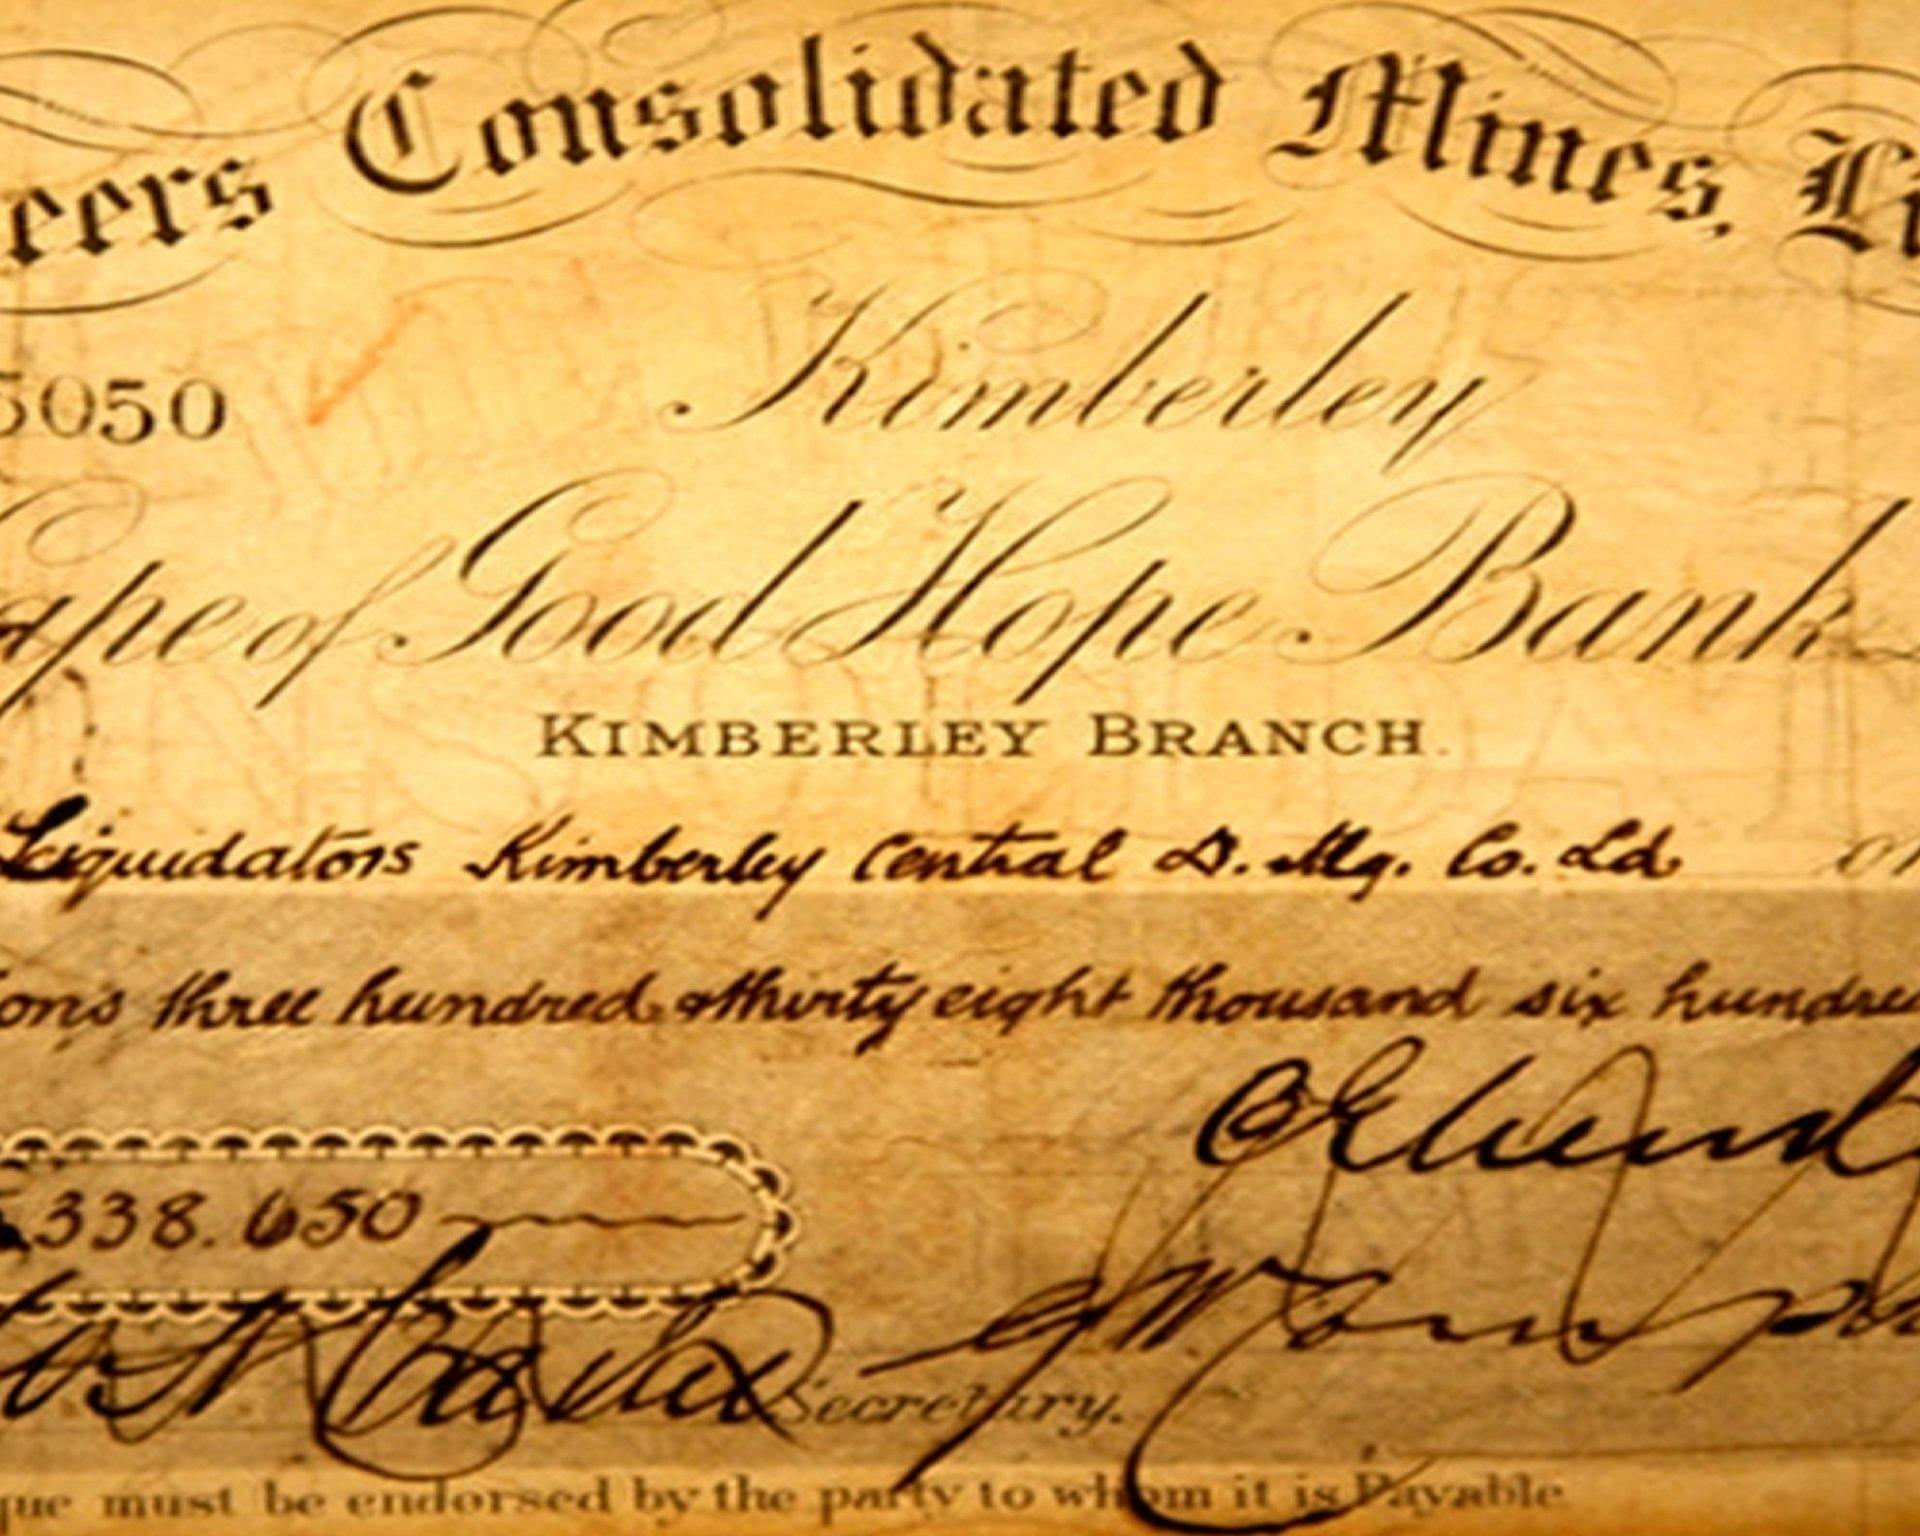 eers Consolidated Mines, Li
Kimberley
5050
ape of Good Hope Bank
KIMBERLEY BRANCH.
Liquidators Kimberley Central D. Mg. Co. Ld or
ons three hundred & thirty eight thousand six hundred
338.650
Secretary.
que must be endorsed by the party to whom it is Payable